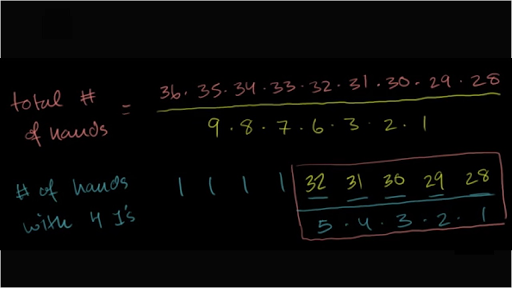 total # of hands = 36·35·34·33·32·31·30·29·28
9·8·7·6·3·2·1
# of hands with 4 1's 1 1 1 1 32 31 30 29 28
5·4·3·2·1